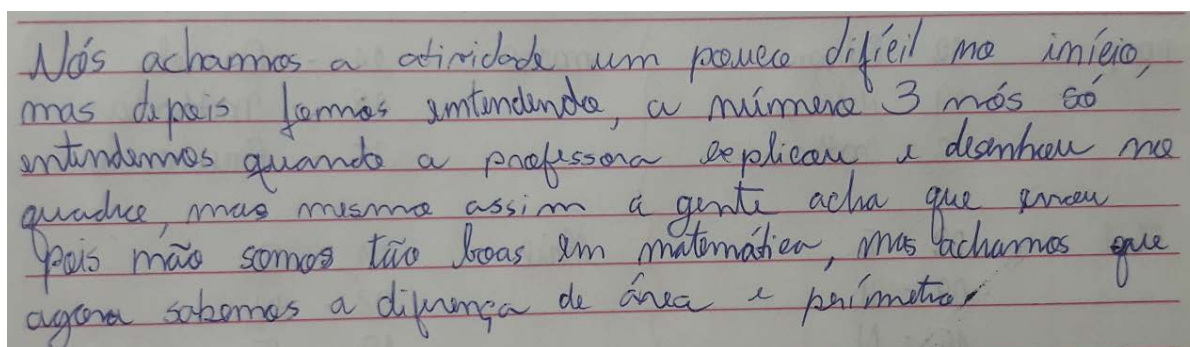 Nós achamos a atividade um pouco difícil no início,
mas depois fomos entendendo, a número 3 nós só
entendemos quando a professora explicou e desenhou no
quadro, mas mesmo assim a gente acha que errou
pois não somos tão boas em matemática, mas achamos que
agora sabemos a diferença de área e perímetro.